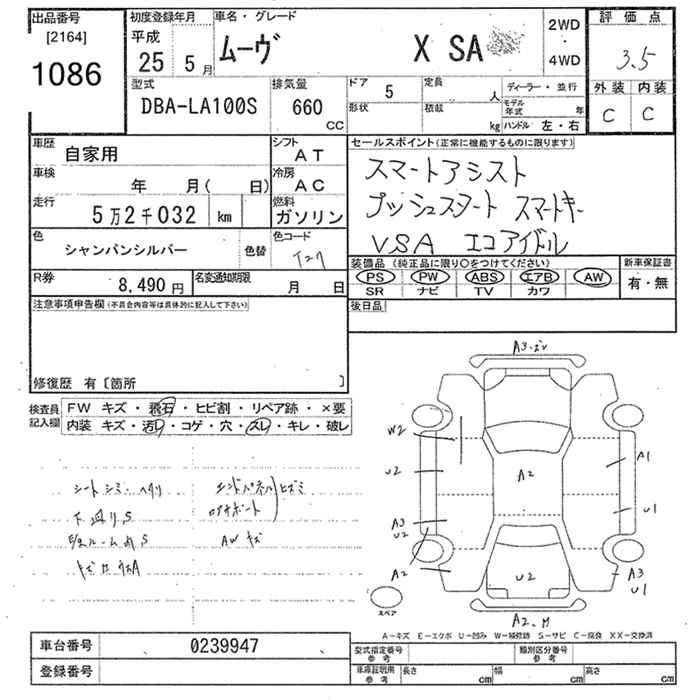 出品番号
[2164]
1086
初度登録年月
平成
25 5月
車名・グレード
ムーヴ X SA
2WD
・
4WD
評価点
3.5
外装 内装
C C
型式
DBA-LA100S
排気量
660
CC
ドア
5
形状
定員
人
積載
kg
ディーラー・並行
モデル年式
年
ハンドル 左・右
車歴
自家用
シフト
AT
車検
年 月( 日)
冷房
AC
走行
5万2千032 km
燃料
ガソリン
色
シャンパンシルバー
色替
色コード
T27
R券
8,490円
名変通知期限
月 日
セールスポイント(正常に機能するものに限ります)
スマートアシスト
プッシュスタート スマートキー
VSA エコアイドル
装備品(純正品に限り○をつけてください)
PS PW ABS エアB AW
SR ナビ TV カワ
新車保証書
有・無
後日品
注意事項申告欄(不具合内容等は具体的に記入して下さい)
修復歴 有〔箇所 〕
検査員
記入欄
FW キズ・飛石・ヒビ割・リペア跡・×要
内装 キズ・汚レ・コゲ・穴・スレ・キレ・破レ
シートシミ・ヘタリ
下廻りS
エンドパネル
ヒズミ
AWキズ
A3
W2
U2
A3
U2
A2
A2
A1
U1
U2
A3
U1
A2
スペア
A-キズ E-エクボ U-凹み W-補修跡 S-サビ C-腐食 XX-交換済
車台番号
0239947
登録番号
型式指定番号
参考
類別区分番号
参考
車庫証明用
参考
長さ cm 幅 cm 高さ cm